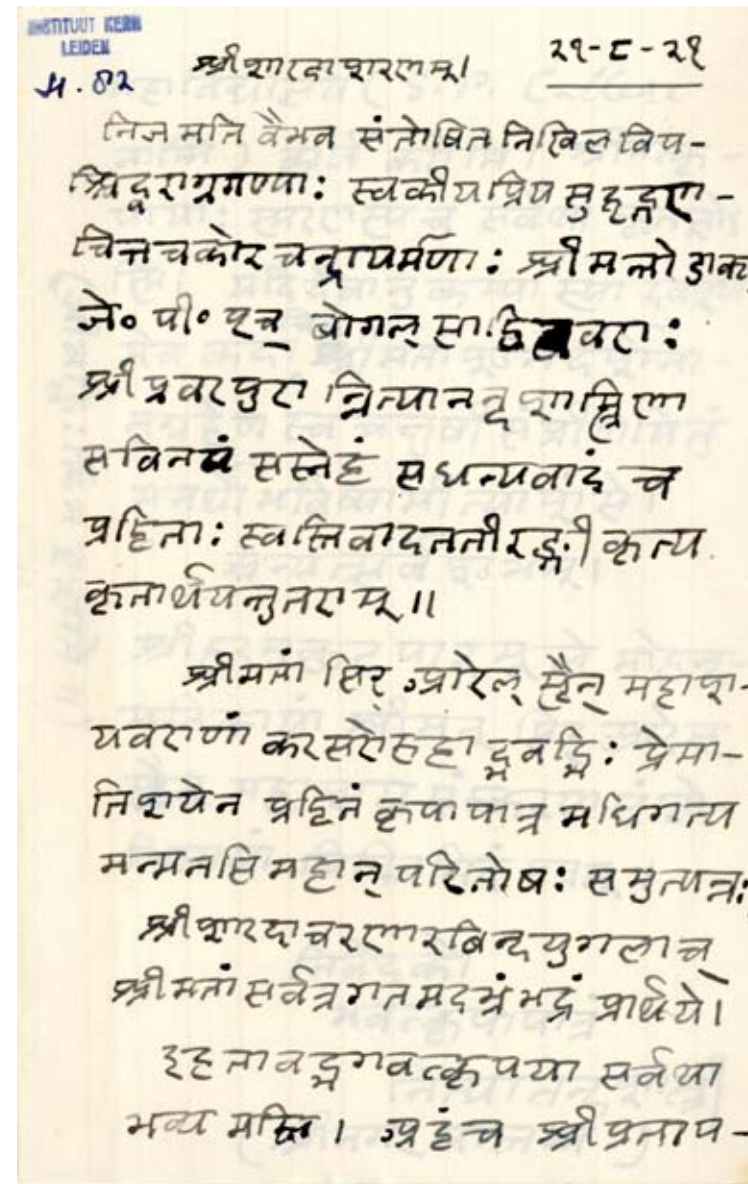 INSTITUUT KERN
LEIDEN
H. 82
श्रीशारदाशरणम्।
२९-८-२९
निजमति वैभव संतोषित निखिल विप-
श्चिद्वराग्रगण्याः स्वकीयप्रिय सुहृद्गण-
चित्तचकोर चन्द्रायमाणाः श्रीमन्तो डाक्
जे० पी० एच् वोगल् साहिब वराः
श्रीप्रवरपुरा न्नित्यानन्द शास्त्रिणा
सविनयं सस्नेहं सधन्यवादं च
प्रहिताः स्वस्तिवादततीरङ्गीकृत्य
कृतार्थयन्तुतराम्॥
श्रीमतां सिर् ओरेल् स्टैन् महाश-
यवराणां करसरोरुहाद्भवद्भिः प्रेमा-
तिशयेन प्रहितं कृपापात्र मधिगत्य
मन्मनसि महान् परितोषः समुत्पन्नः
श्रीशारदाचरणारविन्दयुगलाच्च
श्रीमतां सर्वत्रगतमदभ्रं भद्रं प्रार्थये।
इहतावद्भगवत्कृपया सर्वथा
भव्य मस्ति। अहंच श्रीप्रताप-